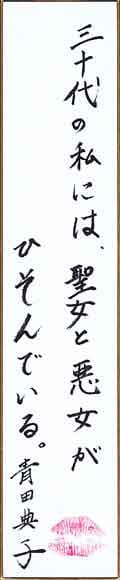 三十代の私には、聖女と悪女が
ひそんでいる。
青田典子